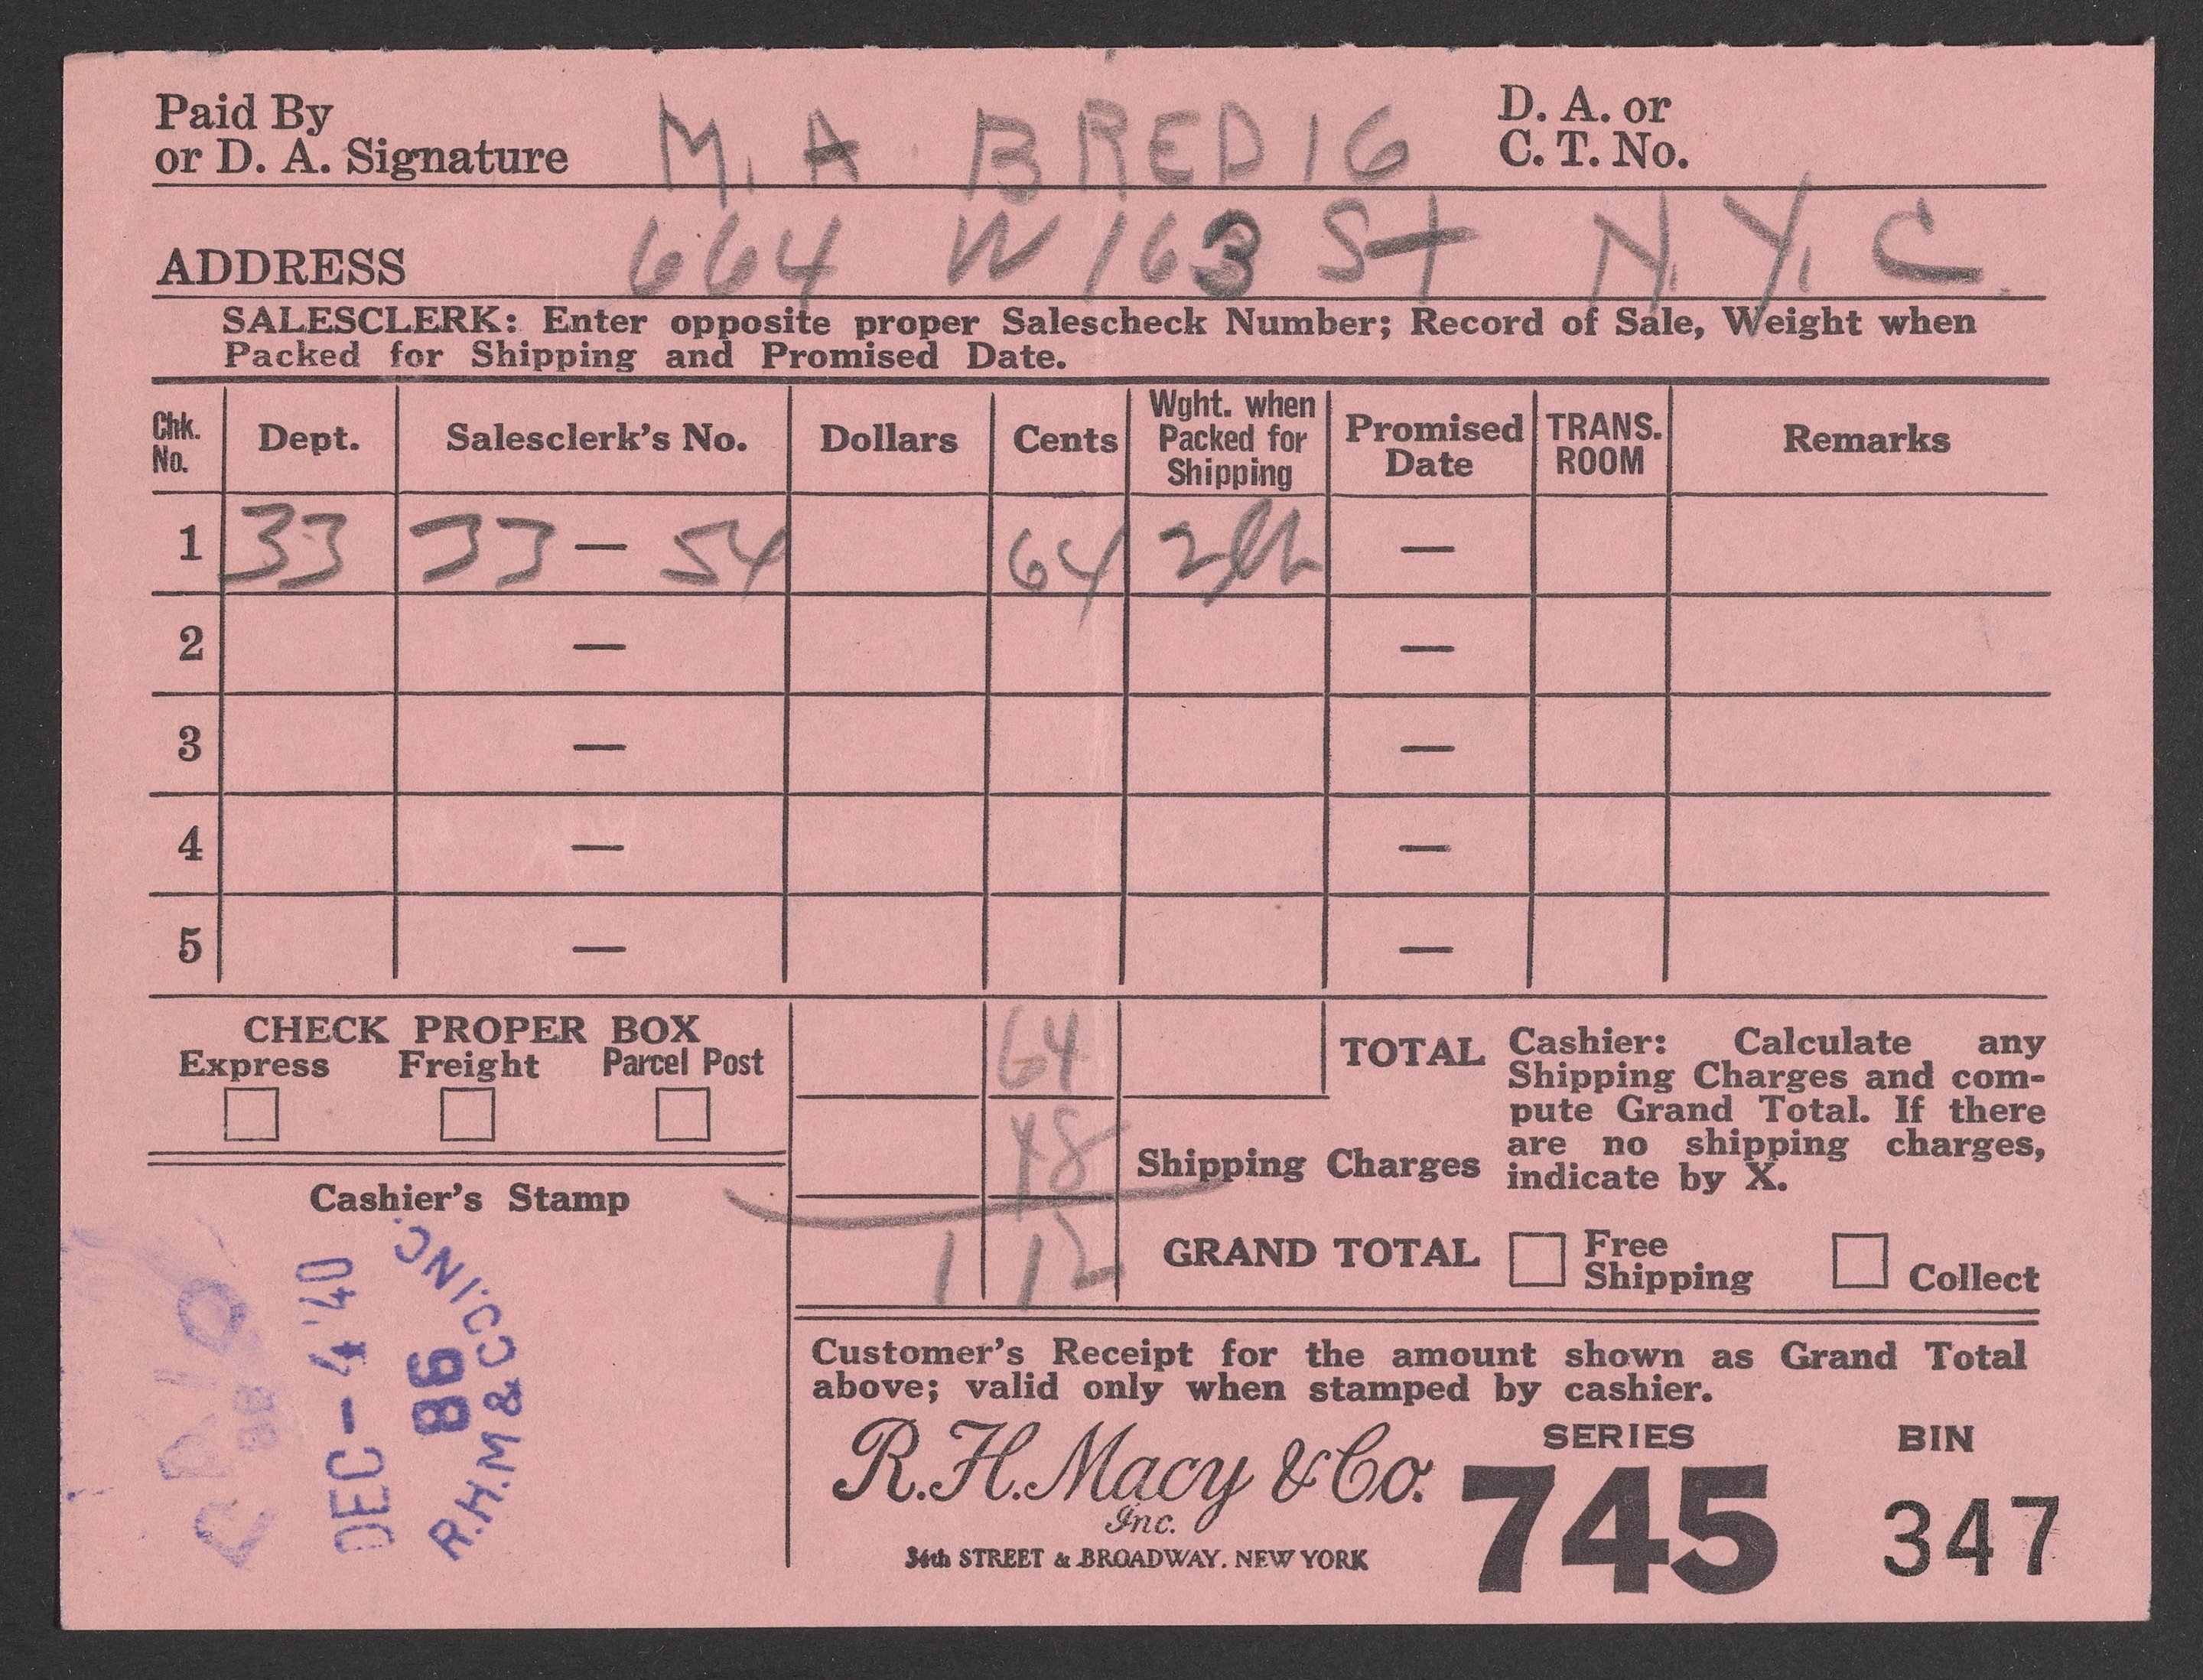 Paid By
or D. A. Signature M. A. BREDIG
D. A. or
C. T. No.
ADDRESS 664 W 163 St N.Y.C.
SALESCLERK: Enter opposite proper Salescheck Number; Record of Sale, Weight when
Packed for Shipping and Promised Date.
Chk. No. Dept. Salesclerk's No. Dollars Cents Wght. when Packed for Shipping Promised Date TRANS. ROOM Remarks
1 33 33 — 54 64 —
2 — —
3 — —
4 — —
5 — —
CHECK PROPER BOX
Express Freight Parcel Post
64 TOTAL
48 Shipping Charges
1 12 GRAND TOTAL
Cashier: Calculate any
Shipping Charges and com-
pute Grand Total. If there
are no shipping charges,
indicate by X.
Free
Shipping
Collect
Cashier's Stamp
DEC - 4 '40
86
R.H.M & CO. INC.
Customer's Receipt for the amount shown as Grand Total
above; valid only when stamped by cashier.
R. H. Macy & Co.
Inc.
34th STREET & BROADWAY. NEW YORK
SERIES
745
BIN
347